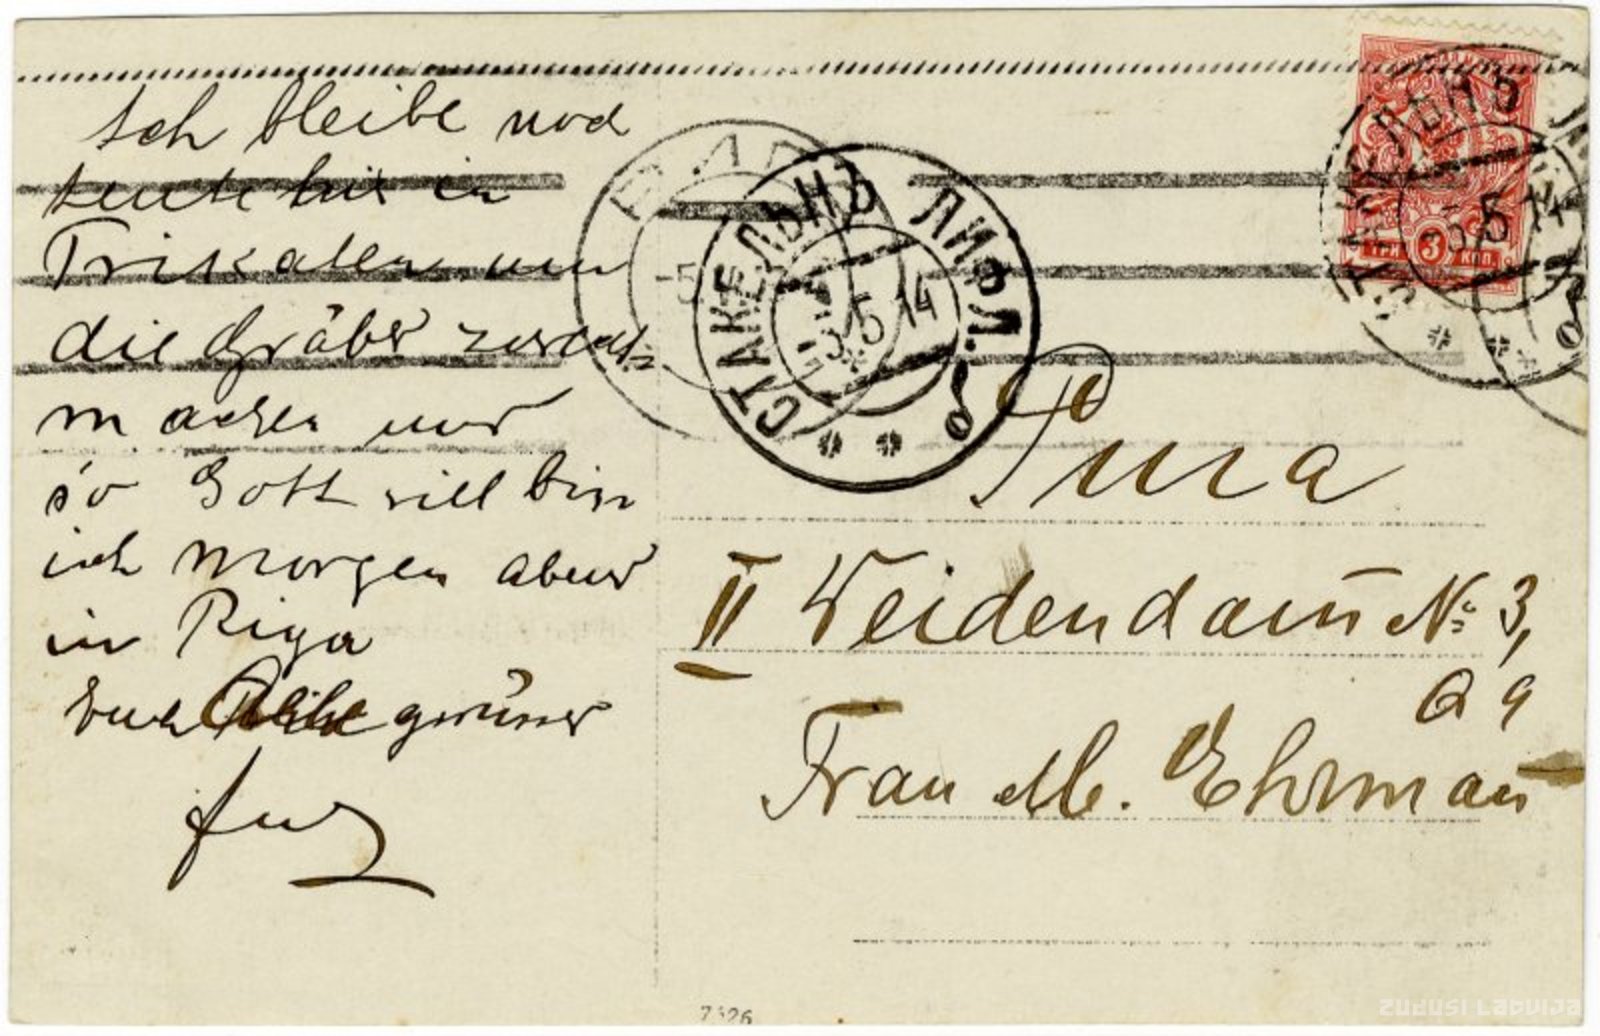 Ich bleibe noch
heute hier in
Trikaten um
die Gräber zurecht
machen und
so Gott will bin
ich morgen abend
in Riga
Euch grüsse
СТАКЕЛЬНЪ ЛИФЛ.
5 14
ТРИ 3 КОП.
5 14
Riga
II Weidendam № 3,
Q 9
Frau M. Ehrman
2326
ZUDUSI LATVIJA